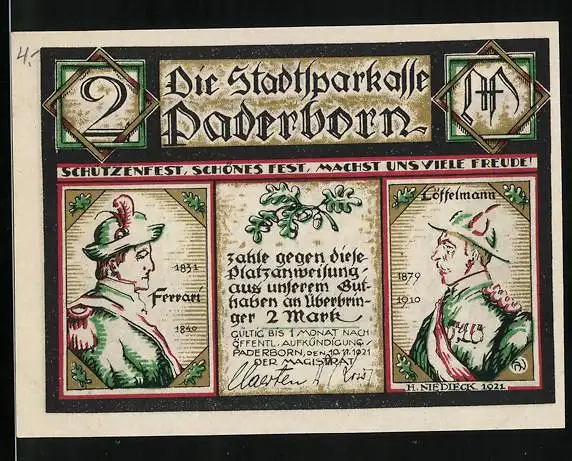 4.
2
Die Stadtsparkasse
Paderborn
M
SCHÜTZENFEST, SCHÖNES FEST, MACHST UNS VIELE FREUDE!
1831
Ferrari
1840
zahle gegen diese
Platzanweisung
aus unserem Gut-
haben an Überbrin-
ger 2 Mark
GÜLTIG BIS 1 MONAT NACH
ÖFFENTL. AUFKÜNDIGUNG
PADERBORN, DEN 10.11.1921
DER MAGISTRAT
Löffelmann
1879
1910
H. NIEDIECK 1921